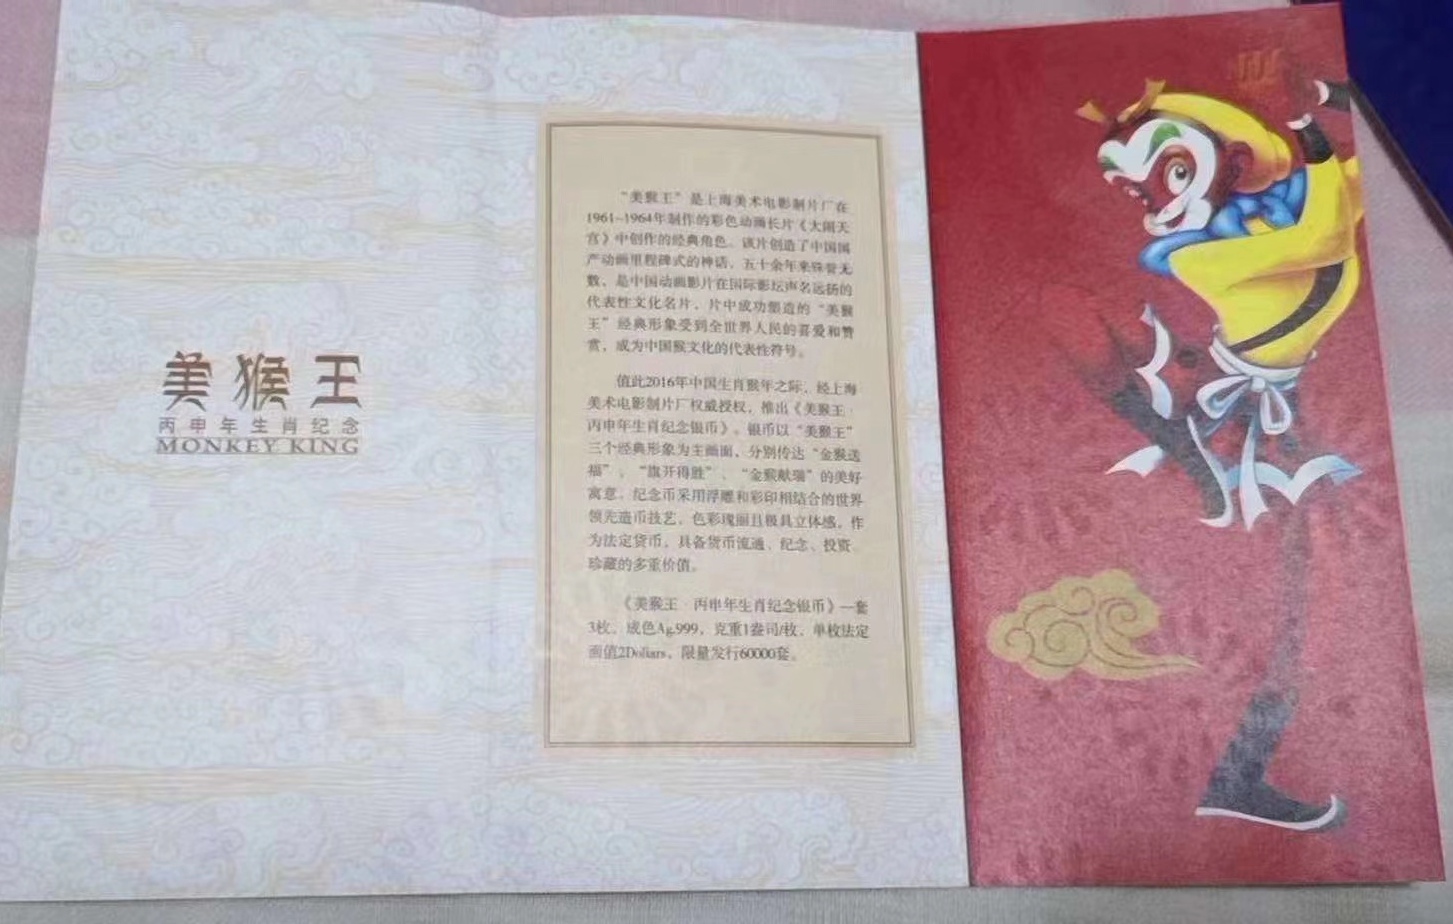 美猴王
丙申年生肖纪念
MONKEY KING
“美猴王”是上海美术电影制片厂在
1961~1964年制作的彩色动画长片《大闹天
宫》中创作的经典角色。该片创造了中国国
产动画里程碑式的神话，五十余年来殊誉无
数，是中国动画影片在国际影坛声名远扬的
代表性文化名片，片中成功塑造的“美猴
王”经典形象受到全世界人民的喜爱和赞
赏，成为中国猴文化的代表性符号。
值此2016年中国生肖猴年之际，经上海
美术电影制片厂权威授权，推出《美猴王·
丙申年生肖纪念银币》。银币以“美猴王”
三个经典形象为主画面，分别传达“金猴送
福”、“旗开得胜”、“金猴献瑞”的美好
寓意。纪念币采用浮雕和彩印相结合的世界
领先造币技艺，色彩瑰丽且极具立体感，作
为法定货币，具备货币流通、纪念、投资、
珍藏的多重价值。
《美猴王·丙申年生肖纪念银币》一套
3枚，成色Ag.999，克重1盎司/枚，单枚法定
面值2Dollars，限量发行60000套。